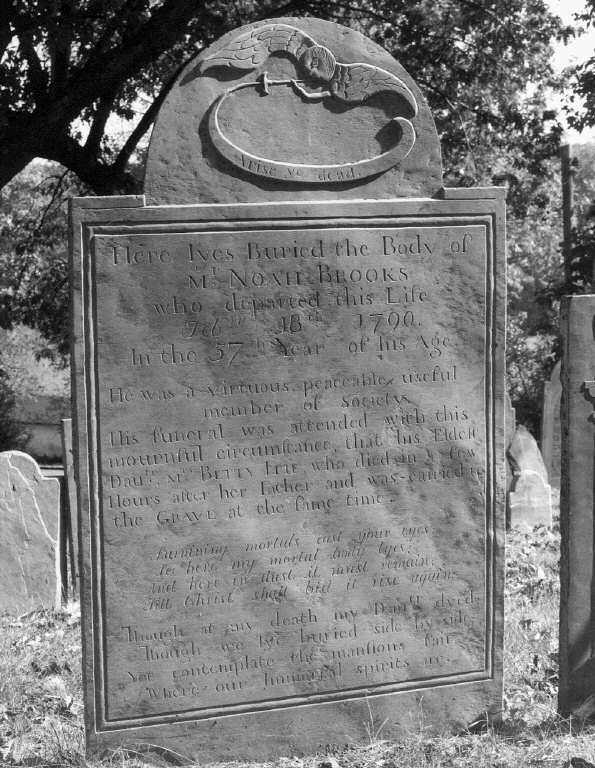 Arise ye dead.
Here lyes Buried the Body of
Mr. NOAH BROOKS
who departed this Life
Febry. 18th. 1790.
In the 57th Year of his Age.
He was a virtuous, peaceable, useful
member of society.
His funeral was attended with this
mournful circumstance, that his Eldest
Daur. Mrs BETTY, who died in a few
Hours after her Father and was carried to
the GRAVE at the same time.
Surviving mortals cast your eyes
See here my mortal body lyes;
And here in dust it must remain,
Till Christ shall bid it rise again.
Though at my death my Daur. dyed,
Though we lye buried side by side,
Yet contemplate the mansions fair
Where our Immortal spirits are.